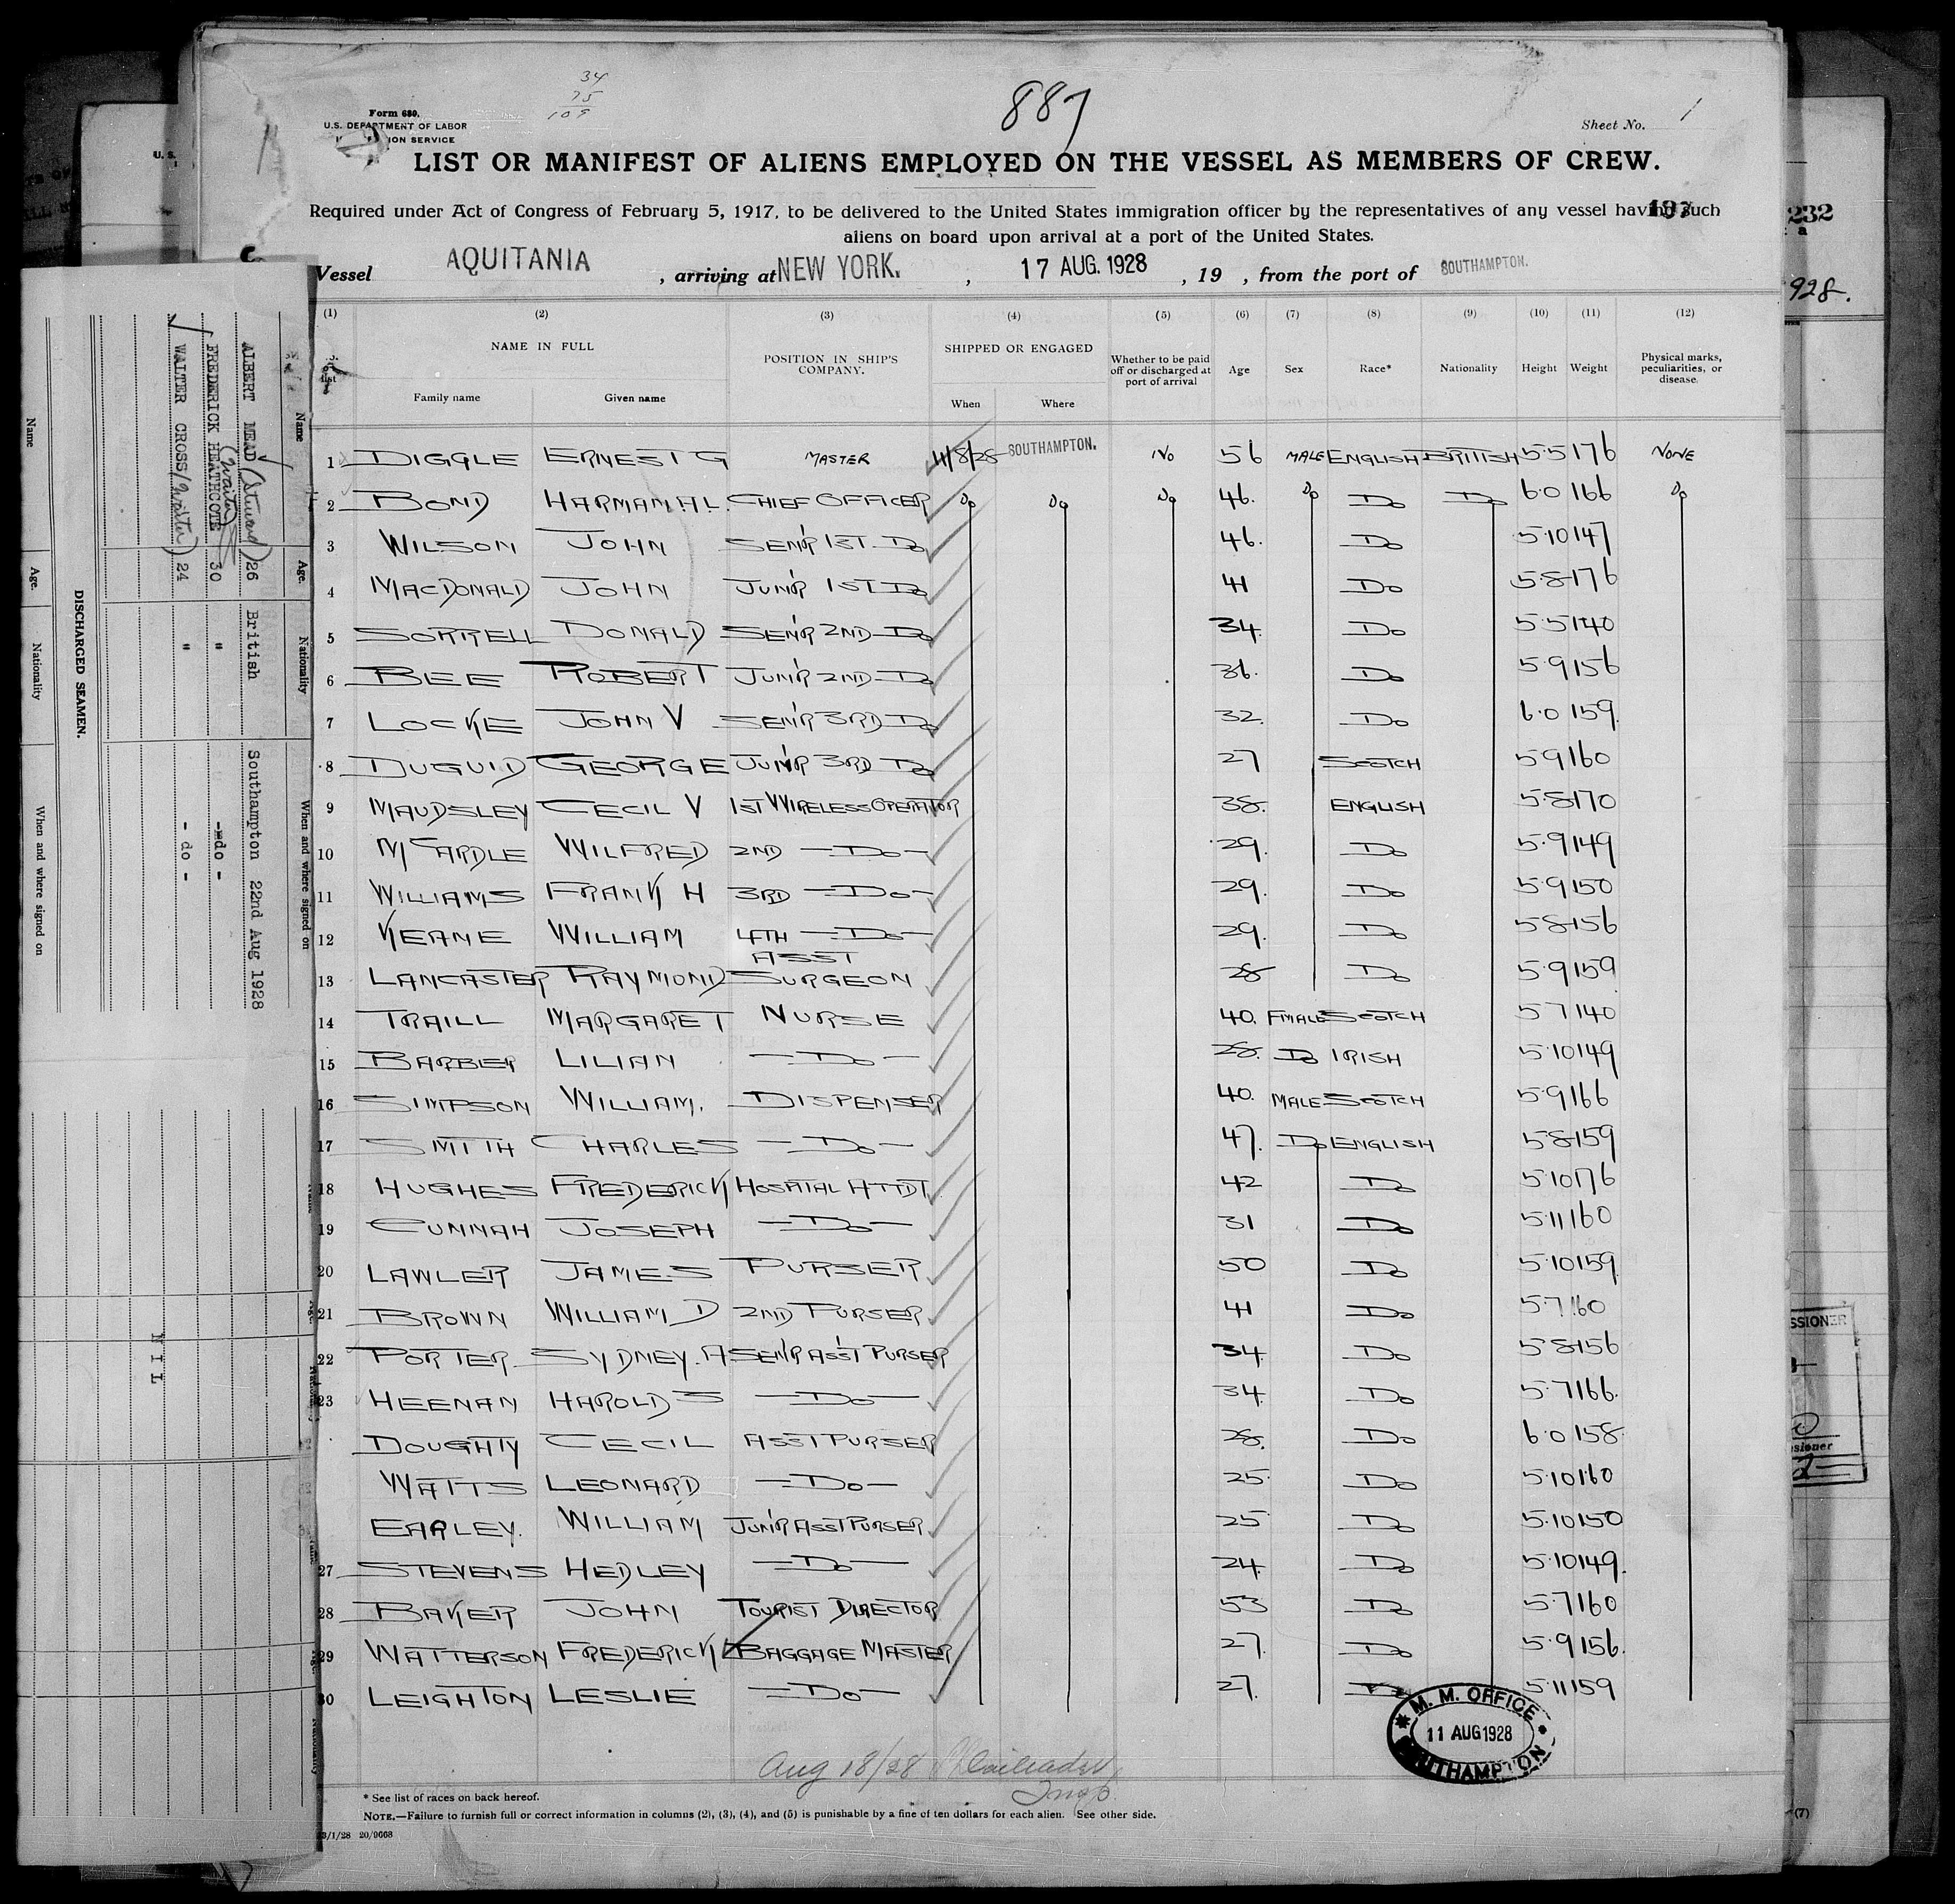 34
75
109
887
Form 680.
U.S. DEPARTMENT OF LABOR
ION SERVICE
Sheet No. 1
LIST OR MANIFEST OF ALIENS EMPLOYED ON THE VESSEL AS MEMBERS OF CREW.
Required under Act of Congress of February 5, 1917, to be delivered to the United States immigration officer by the representatives of any vessel having such
aliens on board upon arrival at a port of the United States.
Vessel AQUITANIA, arriving at NEW YORK., 17 AUG. 1928, 19 , from the port of SOUTHAMPTON.
(1) (2) (3) (4) (5) (6) (7) (8) (9) (10) (11) (12)
NAME IN FULL
Family name Given name
POSITION IN SHIP'S
COMPANY.
SHIPPED OR ENGAGED
When Where
Whether to be paid
off or discharged at
port of arrival
Age Sex Race* Nationality Height Weight
Physical marks,
peculiarities, or
disease.
1 DIGGLE ERNEST G MASTER 4/8/28 SOUTHAMPTON. NO 56 MALE ENGLISH BRITISH 5·5 176 NONE
2 BOND HARMAN AL. CHIEF OFFICER Do Do Do 46. Do Do Do 6·0 166 Do
3 WILSON JOHN SEN'R 1ST Do 46. Do 5·10 147
4 MACDONALD JOHN JUN'R 1ST Do 41 Do 5·8 176
5 SORRELL DONALD SEN'R 2ND Do 34. Do 5·5 140
6 BEE ROBERT JUN'R 2ND Do 36. Do 5·9 156
7 LOCKE JOHN V SEN'R 3RD Do 32. Do 6·0 159
8 DUGUID GEORGE JUN'R 3RD Do 27 SCOTCH 5·9 160
9 MAUDSLEY CECIL V 1ST WIRELESS OPERATOR 38. ENGLISH 5·8 170
10 McARDLE WILFRED 2ND —Do— 29. Do 5·9 149
11 WILLIAMS FRANK H 3RD —Do— 29. Do 5·9 150
12 KEANE WILLIAM 4TH —Do— 29. Do 5·8 156
13 LANCASTER RAYMOND ASST SURGEON 28 Do 5·9 159
14 TRAILL MARGARET NURSE 40. FMALE SCOTCH 5·7 140
15 BARBER LILIAN —Do— 28. Do IRISH 5·10 149
16 SIMPSON WILLIAM. DISPENSER 40. MALE SCOTCH 5·9 166
17 SMITH CHARLES —Do— 47. Do ENGLISH 5·8 159
18 HUGHES FREDERICK HOSPITAL ATTDT. 42 Do 5·10 176
19 CUNNAH JOSEPH —Do— 31 Do 5·11 160
20 LAWLER JAMES PURSER 50 Do 5·10 159
21 BROWN WILLIAM D 2ND PURSER 41 Do 5·7 160
22 PORTER SYDNEY. A SEN'R ASS'T PURSER 34. Do 5·8 156
23 HEENAN HAROLD S —Do— 34. Do 5·7 166.
DOUGHTY CECIL ASST PURSER 28. Do 6·0 158
WATTS LEONARD —Do— 25 Do 5·10 160
EARLEY. WILLIAM JUN'R ASST PURSER 25 Do 5·10 150
27 STEVENS HEDLEY —Do— 24. Do 5·10 149.
28 BAKER JOHN TOURIST DIRECTOR 53 Do 5·7 160
29 WATTERSON FREDERICK BAGGAGE MASTER 27. Do 5·9 156.
30 LEIGHTON LESLIE —Do— 27. Do 5·11 159
M. M. OFFICE
11 AUG 1928
SOUTHAMPTON
Aug 18/28
Insp.
* See list of races on back hereof.
NOTE.—Failure to furnish full or correct information in columns (2), (3), (4), and (5) is punishable by a fine of ten dollars for each alien. See other side.
/1/28 20/9668
Name Age. Nationality When and where signed on
ALBERT MEAD (Steward) 26 British Southampton 22nd Aug 1928
FREDERICK HEATHCOTE (Waiter) 30 " - do -
WALTER CROSS (Waiter) 24 " - do -
DISCHARGED SEAMEN.
Name Age. Nationality When and where signed on
NIL
U. S.
232
928.
SSIONER
sioner
(7)